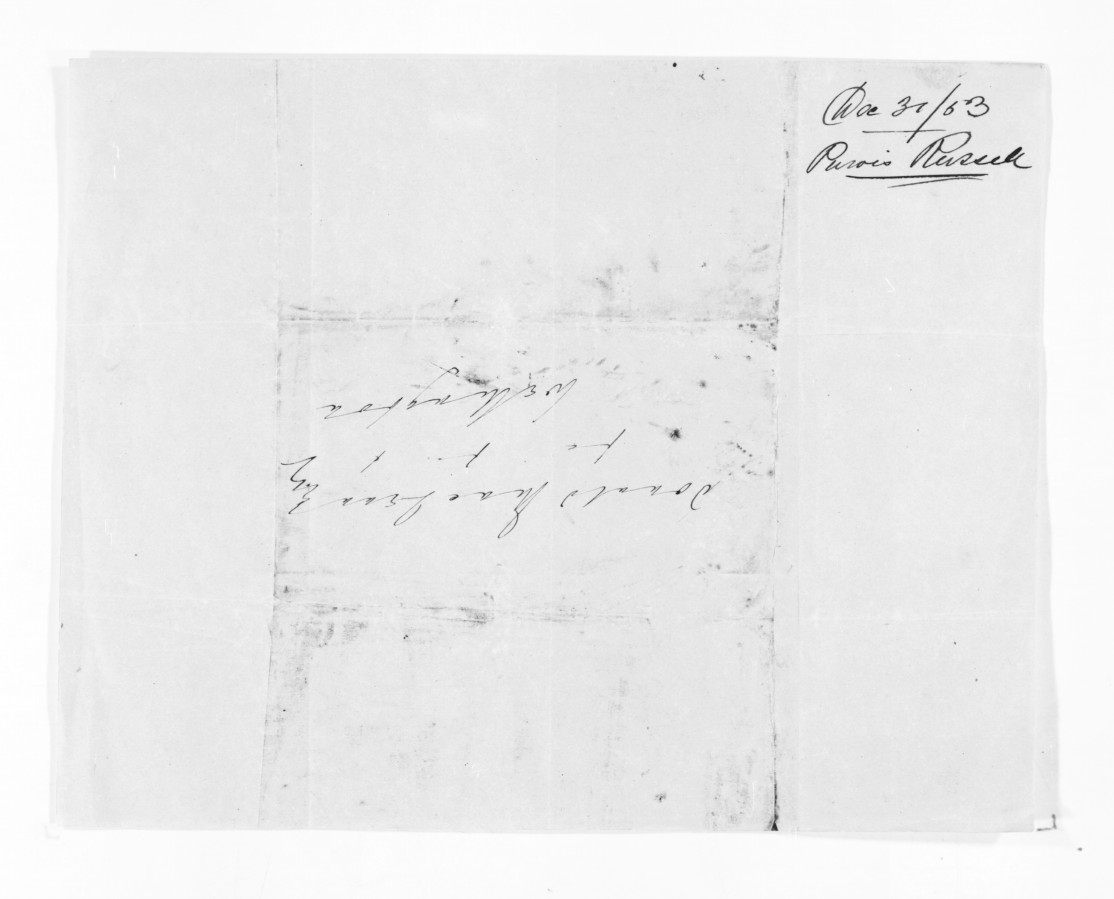 Dec 31/53
Purvis Russell
Donald MacLean Esq
Wellington